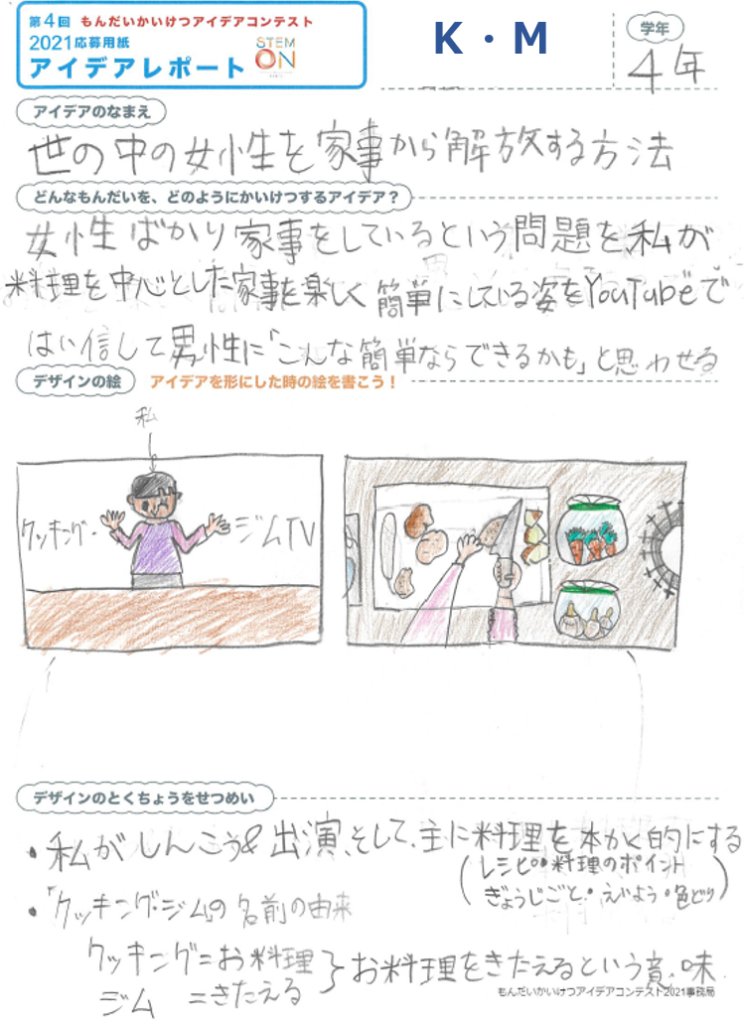 第4回 もんだいかいけつアイデアコンテスト
2021応募用紙
アイデアレポート
STEM
ON
K・M
学年
4年
アイデアのなまえ
世の中の女性を家事から解放する方法
どんなもんだいを、どのようにかいけつするアイデア?
女性ばかり家事をしているという問題を私が
料理を中心とした家事を楽しく簡単にしている姿をYouTubeで
はい信して男性に「こんな簡単ならできるかも」と思わせる
デザインの絵 アイデアを形にした時の絵を書こう!
私
クッキング・ジムTV
デザインのとくちょうをせつめい
・私がしんこう&出演、そして、主に料理を本かく的にする
(レシピ・料理のポイント
ぎょうじごと・えいよう・色どり)
・「クッキング・ジム」の名前の由来
クッキング=お料理
ジム =きたえる
}お料理をきたえるという意味
もんだいかいけつアイデアコンテスト2021事務局